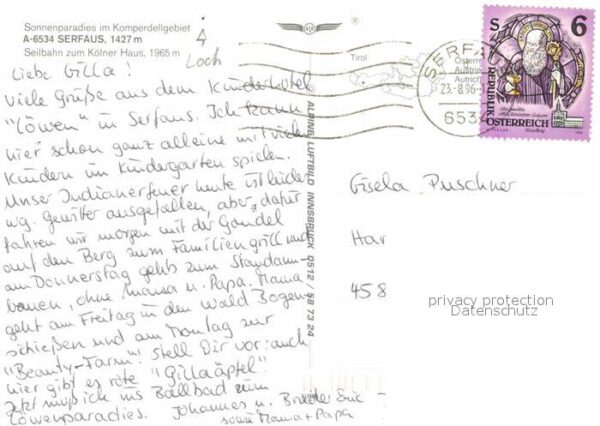 Sonnenparadies im Komperdellgebiet
A-6534 SERFAUS, 1427 m
Seilbahn zum Kölner Haus, 1965 m
Loch
Liebe Gilla!
Viele Grüße aus dem Kinderhotel
"Löwen" in Serfaus. Ich kann
hier schon ganz alleine mit vielen
Kindern im Kindergarten spielen.
Unser Indianerfeuer heute ist leider
wg. Gewitter ausgefallen, aber dafür
fahren wir morgen mit der Gondel
auf den Berg zum Familiengrill und
am Donnerstag gehts zum Staudamm-
bauen, ohne Mama u. Papa. Mama
geht am Freitag in den Wald Bogen-
schießen und am Montag zur
"Beauty-Farm"! Stell Dir vor: auch
hier gibt es rote "Gillaäpfel".
Jetzt muß ich ins Ballbad zum
Löwenparadies. Johannes u. Bruder Eric
sowie Mama + Papa
ALPINE LUFTBILD INNSBRUCK 0512 / 58 73 24
Tirol
SERFAUS
Österreich
Austria
Autriche
23.-8.96-1
6534
S 6
REPUBLIK
ÖSTERREICH
Gisela Puschner
Har
458
privacy protection
Datenschutz